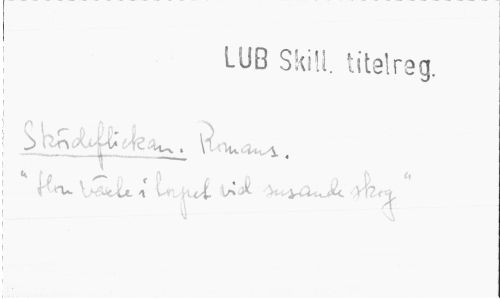 LUB Skill. titelreg.
Skördeflickan. Romans.
"Hon växte i torpet vid susande skog"